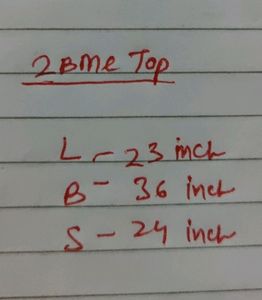 2BMe Top
L - 23 inch
B - 36 inch
S - 24 inch